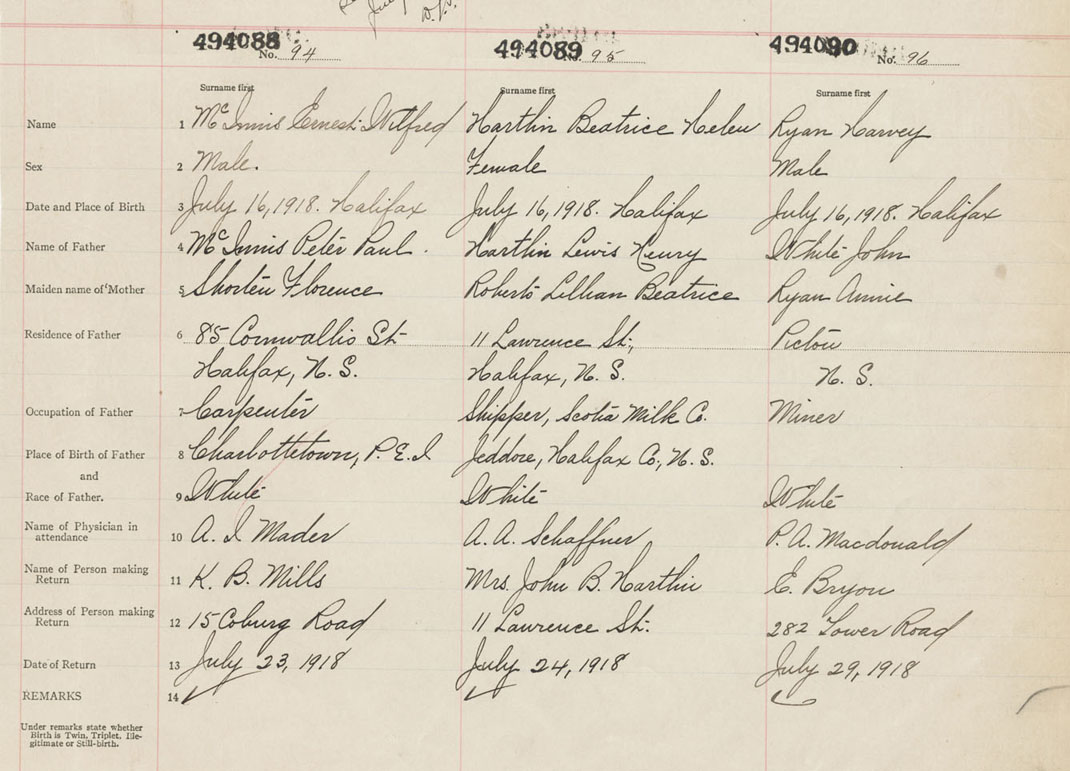 494088 494089 494090
No. 94 No. 95 No. 96
Surname first Surname first Surname first
Name 1 McInnis Ernest Wilfred Harthin Beatrice Helen Ryan Harvey
Sex 2 Male. Female Male
Date and Place of Birth 3 July 16, 1918. Halifax July 16, 1918. Halifax July 16, 1918. Halifax
Name of Father 4 McInnis Peter Paul. Harthin Lewis Henry White John
Maiden name of Mother 5 Shorten Florence Roberts Lillian Beatrice Ryan Annie
Residence of Father 6 85 Cornwallis St. 11 Lawrence St., Pictou
Halifax, N. S. Halifax, N. S. N. S.
Occupation of Father 7 Carpenter Shipper, Scotia Milk Co. Miner
Place of Birth of Father 8 Charlottetown, P.E.I Jeddore, Halifax Co., N. S.
and
Race of Father. 9 White White White
Name of Physician in
attendance 10 A. I Mader A. A. Schaffner P. A. Macdonald
Name of Person making
Return 11 K. B. Mills Mrs. John B. Harthin E. Bryon
Address of Person making
Return 12 15 Coburg Road 11 Lawrence St. 282 Tower Road
Date of Return 13 July 23, 1918 July 24, 1918 July 29, 1918
REMARKS 14
Under remarks state whether
Birth is Twin, Triplet, Ille-
gitimate or Still-birth.